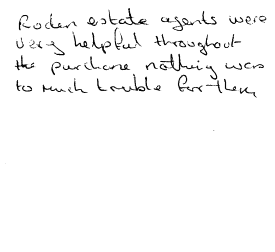 Roden estate agents were
very helpful throughout
the purchase nothing was
to much trouble for them